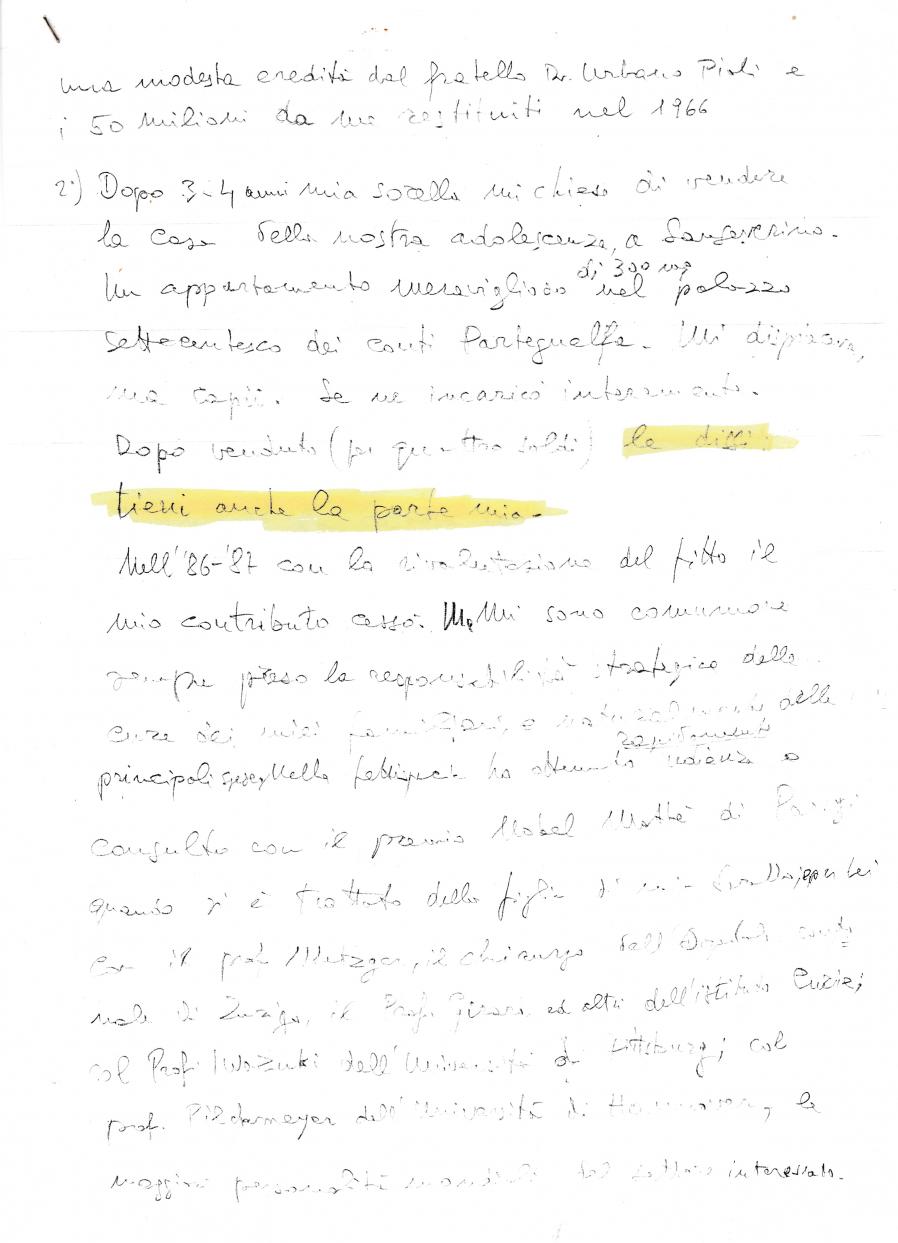 una modesta eredità dal fratello Dr. Urbano Pioli e
i 50 milioni da me restituiti nel 1966
2°) Dopo 3-4 anni mia sorella mi chiese di vendere
la casa della nostra adolescenza, a Sanseverino.
Un appartamento meraviglioso di 300 mq nel palazzo
settecentesco dei conti Parteguelfa. Mi dispiaceva,
ma capii. Se ne incaricò interamente.
Dopo venduto (per quattro soldi) le dissi:
tieni anche la parte mia.
Nell'86-'87 con la rivalutazione del fitto il
mio contributo cessò. Mi sono comunque
sempre preso la responsabilità strategica delle
cure dei miei famigliari, e naturalmente delle
principali spese. Nella ho ottenuto rapidamente udienza e
consulto con il premio Nobel Mathé di Parigi
quando si è trattato della figlia di mia sorella, per lei
con il prof. Metzger, il chirurgo dell'Ospedale canto
nale di Zurigo, il Prof. ed altri dell'istituto Curie;
col Prof. dell'Università di Pittsburg; col
prof. dell'Università di Hannover, le
maggiori personalità mondiali del settore interessato.